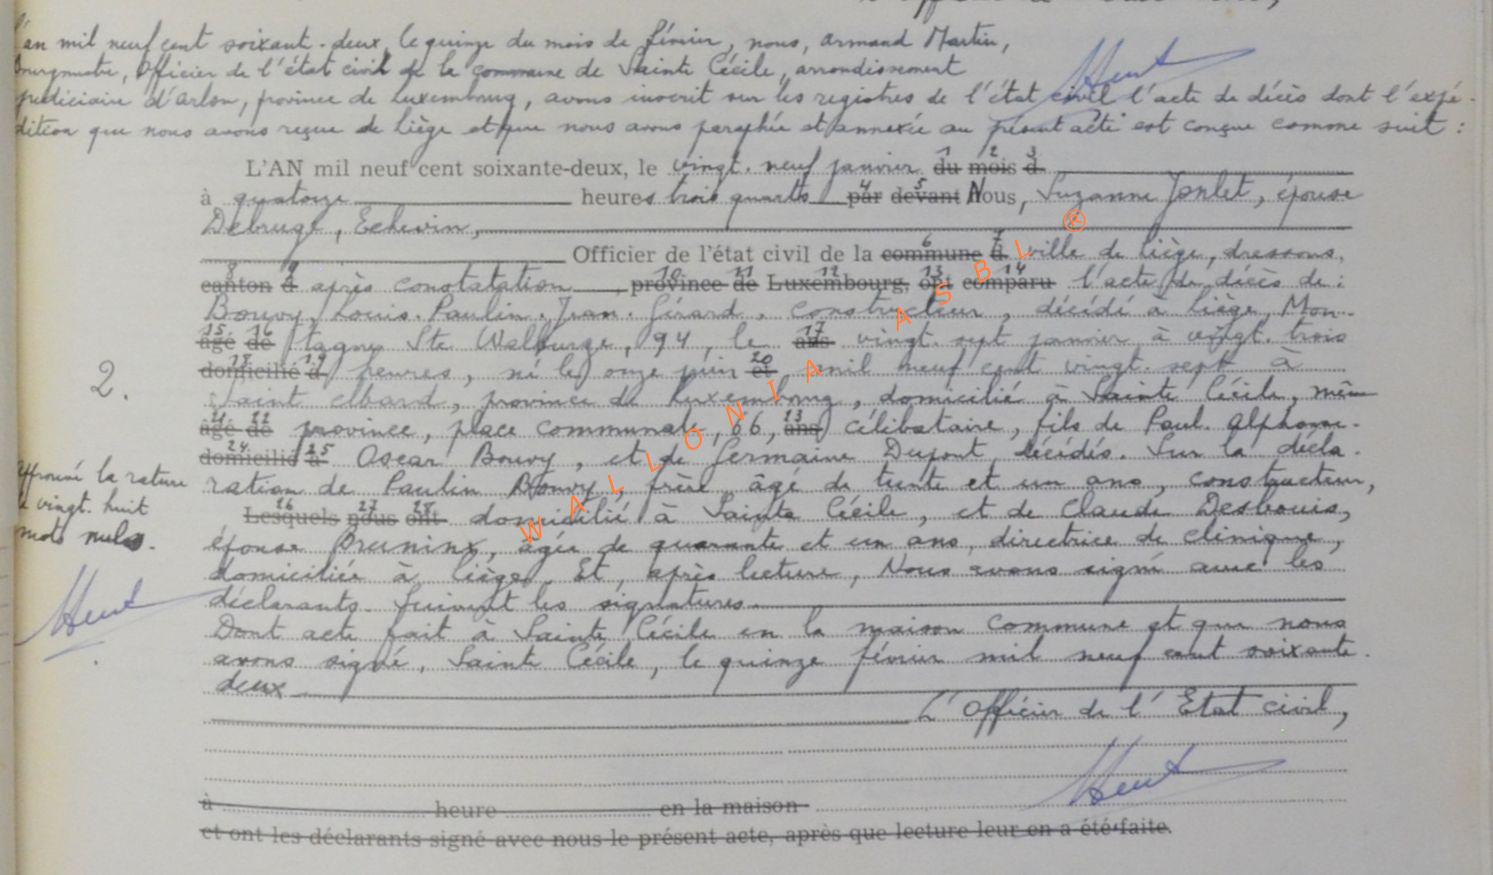 L'an mil neuf cent soixante-deux, le quinze du mois de février, nous, Armand Martin,
Bourgmestre, Officier de l'état civil de la commune de Sainte Cécile, arrondissement
judiciaire d'Arlon, province de Luxembourg, avons inscrit sur les registres de l'état civil l'acte de décès dont l'expé-
dition que nous avons reçue de Liège et que nous avons paraphée et annexée au présent acte est conçue comme suit :
L'AN mil neuf cent soixante-deux, le vingt-neuf janvier du 1 mois 2 d 3
à quatorze heures trois quarts par 4 devant 5 Nous, Suzanne Jonlet, épouse
Debruge, Echevin,
Officier de l'état civil de la commune 6 d 7 ville de Liège, dressons,
canton 8 d 9 après constatation, province 10 de 11 Luxembourg, 12 ont 13 comparu 14 l'acte de décès de :
Bouvy, Louis. Paulin. Jean. Gérard, constructeur, décédé à Liège, Mon-
âgé 15 de 16 tagne Ste Walburge, 94, le ans 17 vingt-sept janvier à vingt-trois
domicilié 18 à 19 heures, né le onze juin et 20 mil neuf cent vingt-sept à
Saint Mard, province de Luxembourg, domicilié à Sainte Cécile, même
âgé 21 de 22 province, place communale, 66, ans 23 célibataire, fils de Paul. Alphonse.
domicilié 24 à 25 Oscar Bouvy, et de Germaine Dupont, décédés. Sur la décla-
ration de Paulin Bouvy, frère, âgé de trente et un ans, constructeur,
Lesquels 26 nous 27 ont 28 domicilié à Sainte Cécile, et de Claude Desbouis,
épouse Bruninx, âgée de quarante et un ans, directrice de clinique,
domiciliée à Liège. Et, après lecture, Nous avons signé avec les
déclarants. Suivent les signatures.
Dont acte fait à Sainte Cécile en la maison commune et que nous
avons signé, Sainte Cécile, le quinze février mil neuf cent soixante-
deux
L'Officier de l'Etat civil,
à heure en la maison
et ont les déclarants signé avec nous le présent acte, après que lecture leur en a été faite.
2.
Approuvé la rature
de vingt-huit
mots nuls.
WALLONIA ASBL ®